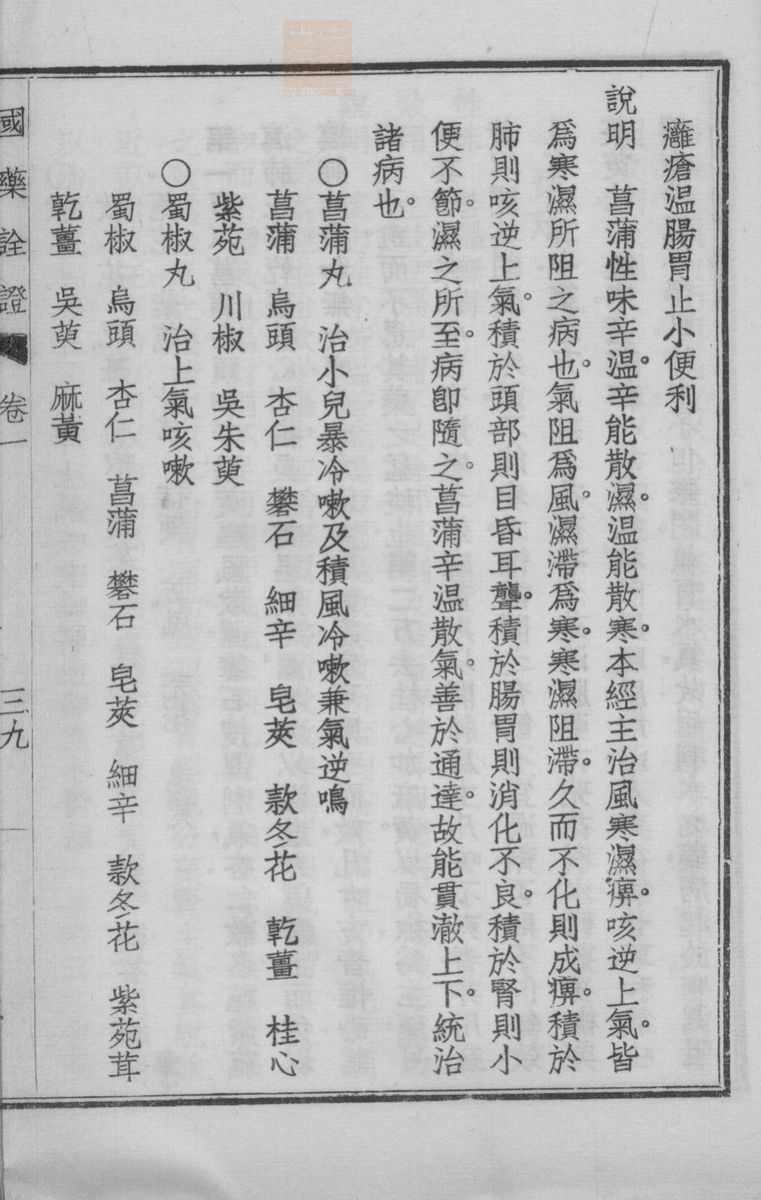 癰瘡温腸胃止小便利
說明　菖蒲性味辛温。辛能散濕。温能散寒。本經主治風寒濕痹。咳逆上氣。皆
爲寒濕所阻之病也。氣阻爲風。濕滯爲寒。寒濕阻滯。久而不化則成痹。積於
肺則咳逆上氣。積於頭部則目昏耳聾。積於腸胃則消化不良。積於腎則小
便不節。濕之所至。病卽隨之。菖蒲辛温散氣。善於通達。故能貫澈上下。統治
諸病也。
○菖蒲丸　治小兒暴冷嗽及積風冷嗽兼氣逆鳴
菖蒲　烏頭　杏仁　礬石　細辛　皂莢　款冬花　乾薑　桂心
紫苑　川椒　吳朱萸
○蜀椒丸　治上氣咳嗽
蜀椒　烏頭　杏仁　菖蒲　礬石　皂莢　細辛　款冬花　紫苑茸
乾薑　吳萸　麻黃
國藥詮證　卷一　三九